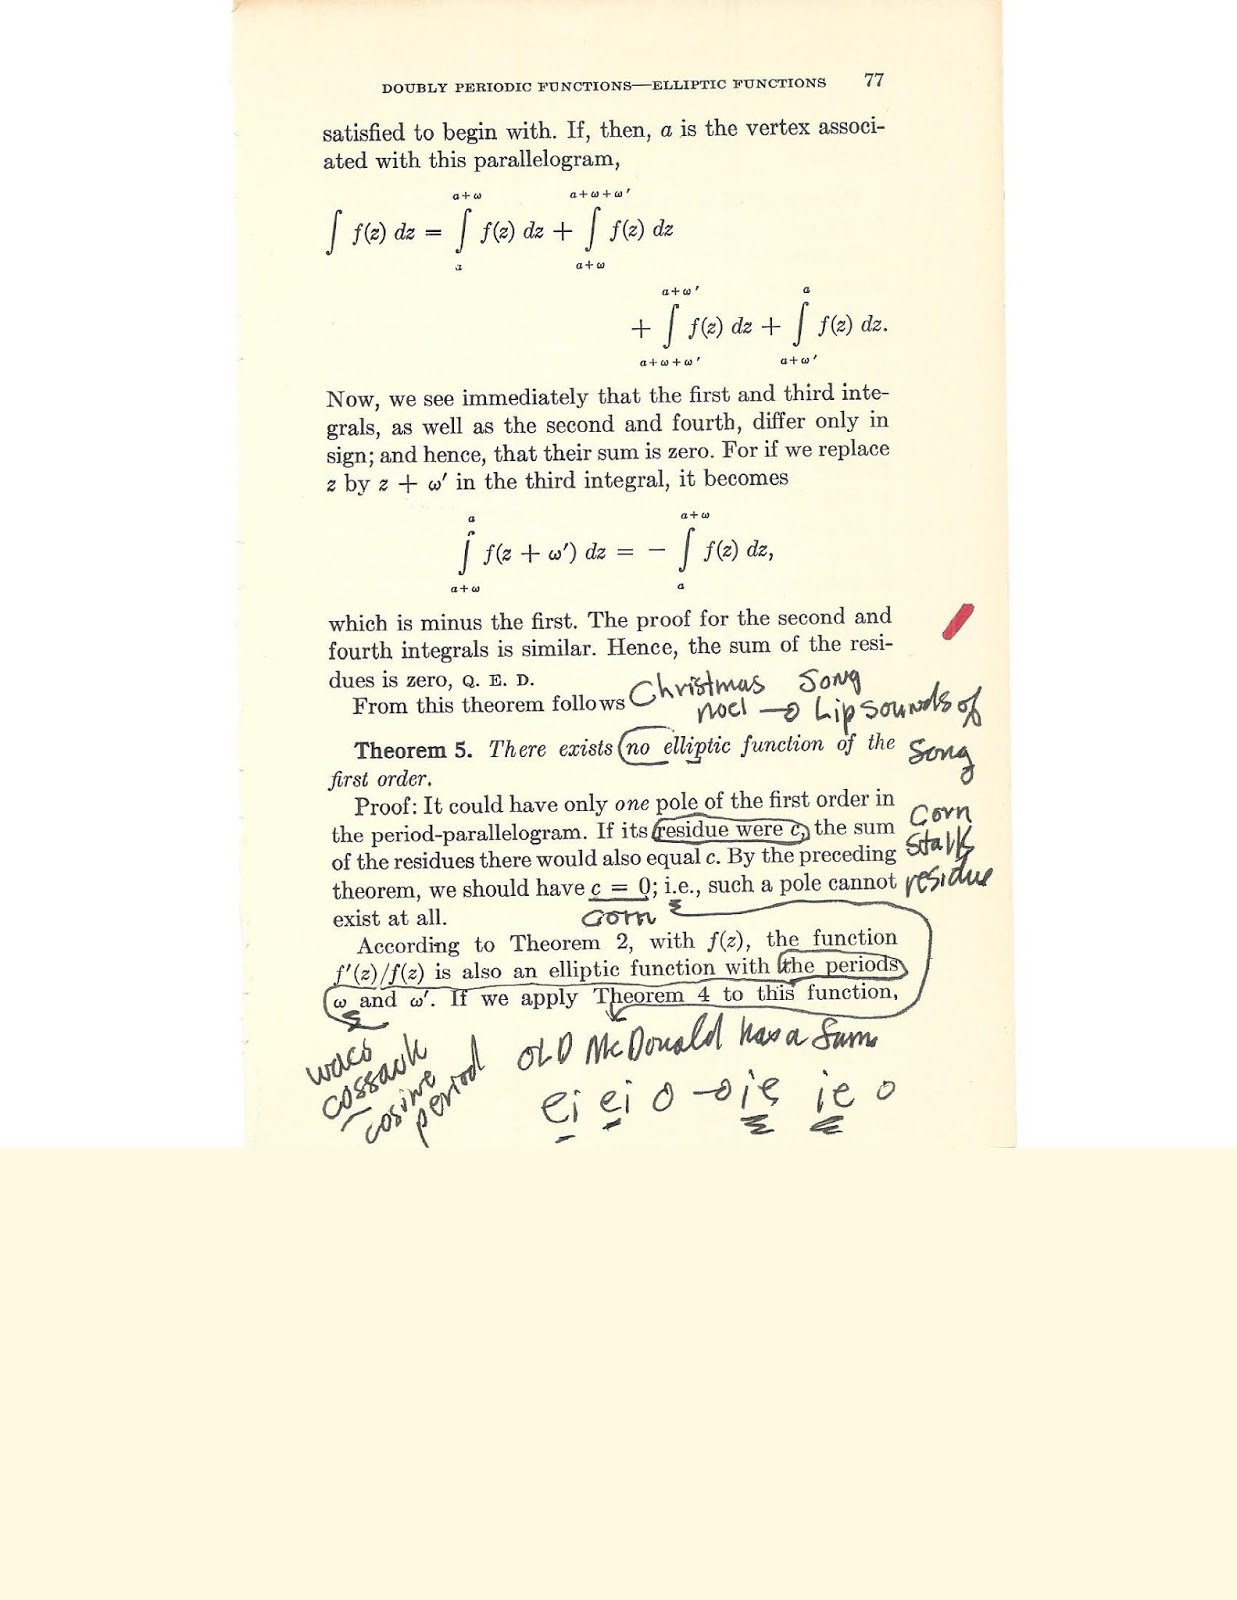 DOUBLY PERIODIC FUNCTIONS—ELLIPTIC FUNCTIONS 77
satisfied to begin with. If, then, a is the vertex associ-
ated with this parallelogram,
a+ω a+ω+ω′
∫ f(z) dz = ∫ f(z) dz + ∫ f(z) dz
a a+ω
a+ω′ a
+ ∫ f(z) dz + ∫ f(z) dz.
a+ω+ω′ a+ω′
Now, we see immediately that the first and third inte-
grals, as well as the second and fourth, differ only in
sign; and hence, that their sum is zero. For if we replace
z by z + ω′ in the third integral, it becomes
a a+ω
∫ f(z + ω′) dz = − ∫ f(z) dz,
a+ω a
which is minus the first. The proof for the second and
fourth integrals is similar. Hence, the sum of the resi-
dues is zero, Q. E. D.
Christmas Song
From this theorem follows
noel → Lip sounds of
Song
Theorem 5. There exists no elliptic function of the
first order.
Proof: It could have only one pole of the first order in
the period-parallelogram. If its residue were c, the sum
of the residues there would also equal c. By the preceding
theorem, we should have c = 0; i.e., such a pole cannot
exist at all.
Corn
Stalk
residue
corn
According to Theorem 2, with f(z), the function
f′(z)/f(z) is also an elliptic function with the periods
ω and ω′. If we apply Theorem 4 to this function,
waco
cossack
cosine
period
OLD McDonald has a
ei ei o → ie ie o